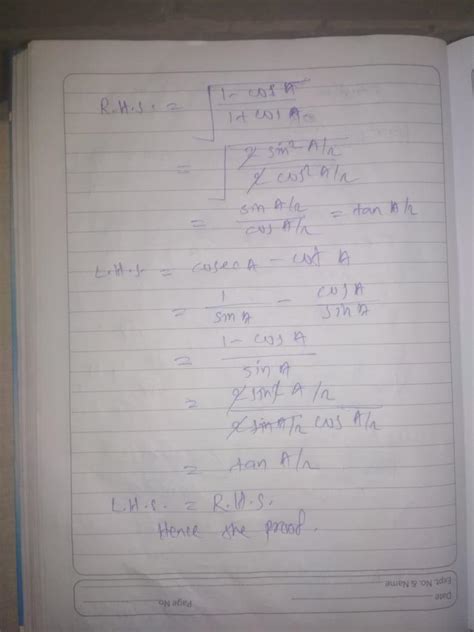 R.H.S. = √(1 - cos A / 1 + cos A)
= √(2 sin² A/2 / 2 cos² A/2)
= sin A/2 / cos A/2 = tan A/2
L.H.S. = cosec A - cot A
= 1 / sin A - cos A / sin A
= 1 - cos A / sin A
= 2 sin² A/2 / 2 sin A/2 cos A/2
= tan A/2
L.H.S. = R.H.S.
Hence the proof.
Page No.
Date
Expt. No. & Name